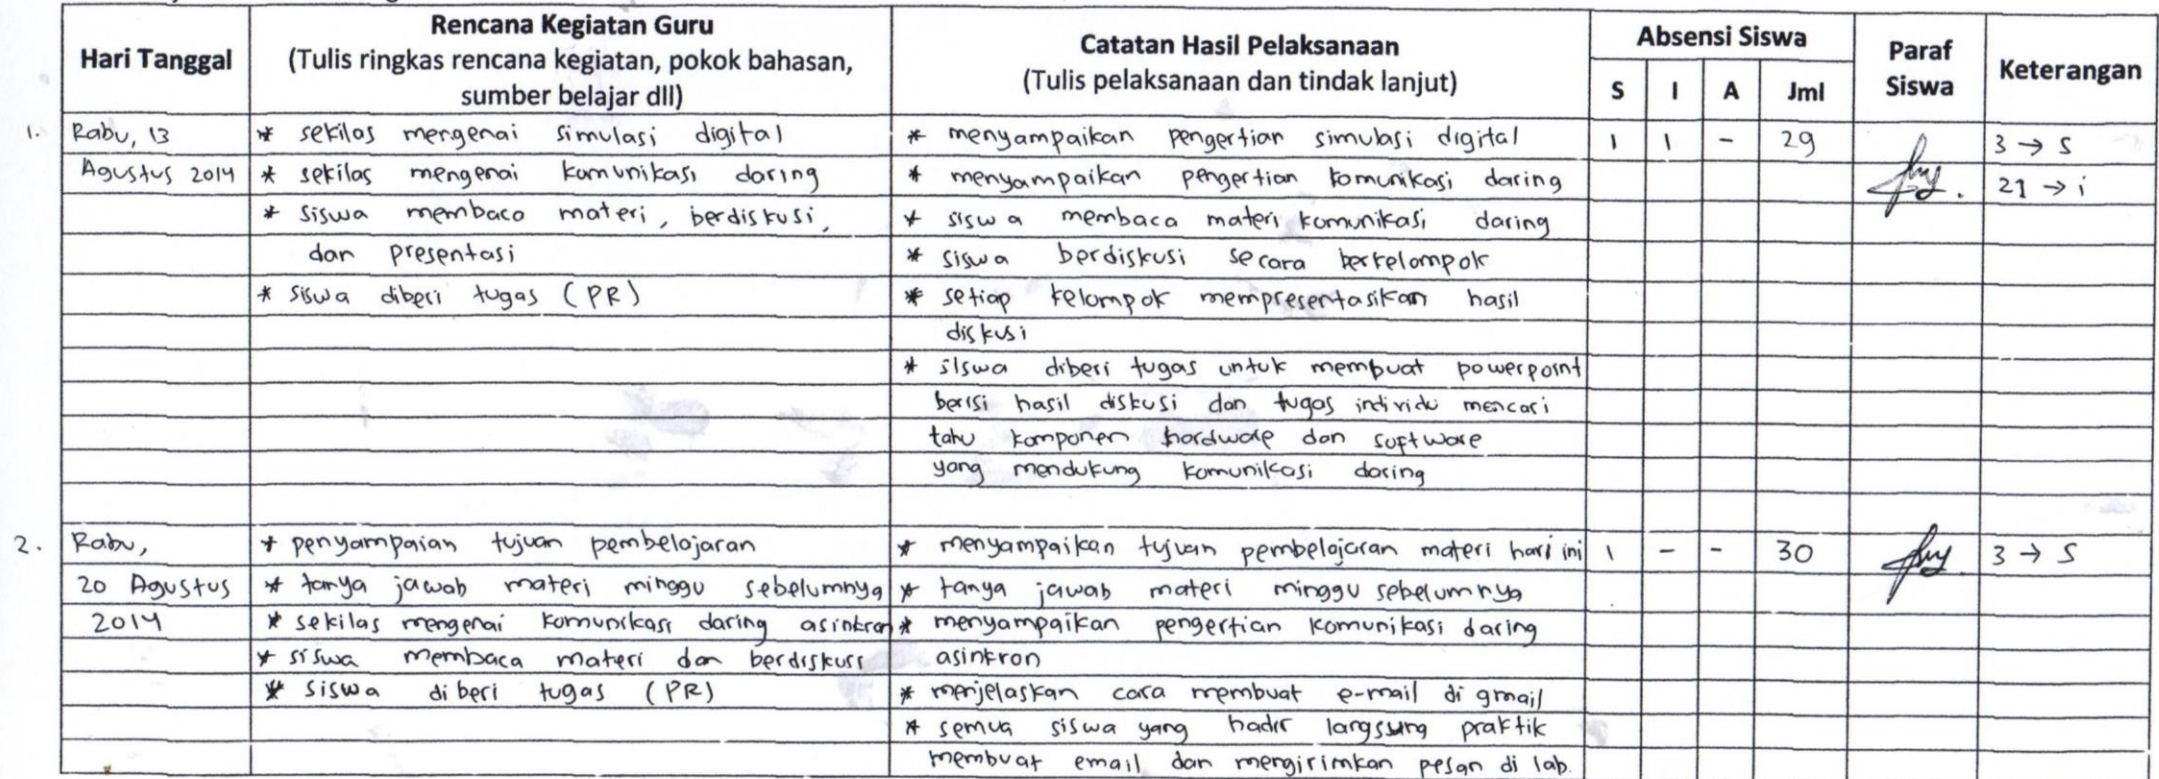 Hari Tanggal
Rencana Kegiatan Guru
(Tulis ringkas rencana kegiatan, pokok bahasan,
sumber belajar dll)
Catatan Hasil Pelaksanaan
(Tulis pelaksanaan dan tindak lanjut)
Absensi Siswa
S I A Jml
Paraf
Siswa
Keterangan
1. Rabu, 13
Agustus 2014
* sekilas mengenai simulasi digital
* sekilas mengenai komunikasi daring
* siswa membaca materi, berdiskusi,
dan presentasi
* siswa diberi tugas (PR)
* menyampaikan pengertian simulasi digital
* menyampaikan pengertian komunikasi daring
* siswa membaca materi komunikasi daring
* siswa berdiskusi secara berkelompok
* setiap kelompok mempresentasikan hasil
diskusi
* siswa diberi tugas untuk membuat powerpoint
berisi hasil diskusi dan tugas individu mencari
tahu komponen hardware dan software
yang mendukung komunikasi daring
1 1 - 29
3 → S
21 → i
2. Rabu,
20 Agustus
2014
* penyampaian tujuan pembelajaran
* tanya jawab materi minggu sebelumnya
* sekilas mengenai komunikasi daring asinkron
* siswa membaca materi dan berdiskusi
* siswa diberi tugas (PR)
* menyampaikan tujuan pembelajaran materi hari ini
* tanya jawab materi minggu sebelumnya
* menyampaikan pengertian komunikasi daring
asinkron
* menjelaskan cara membuat e-mail di gmail
* semua siswa yang hadir langsung praktik
membuat email dan mengirimkan pesan di lab.
1 - - 30
3 → S